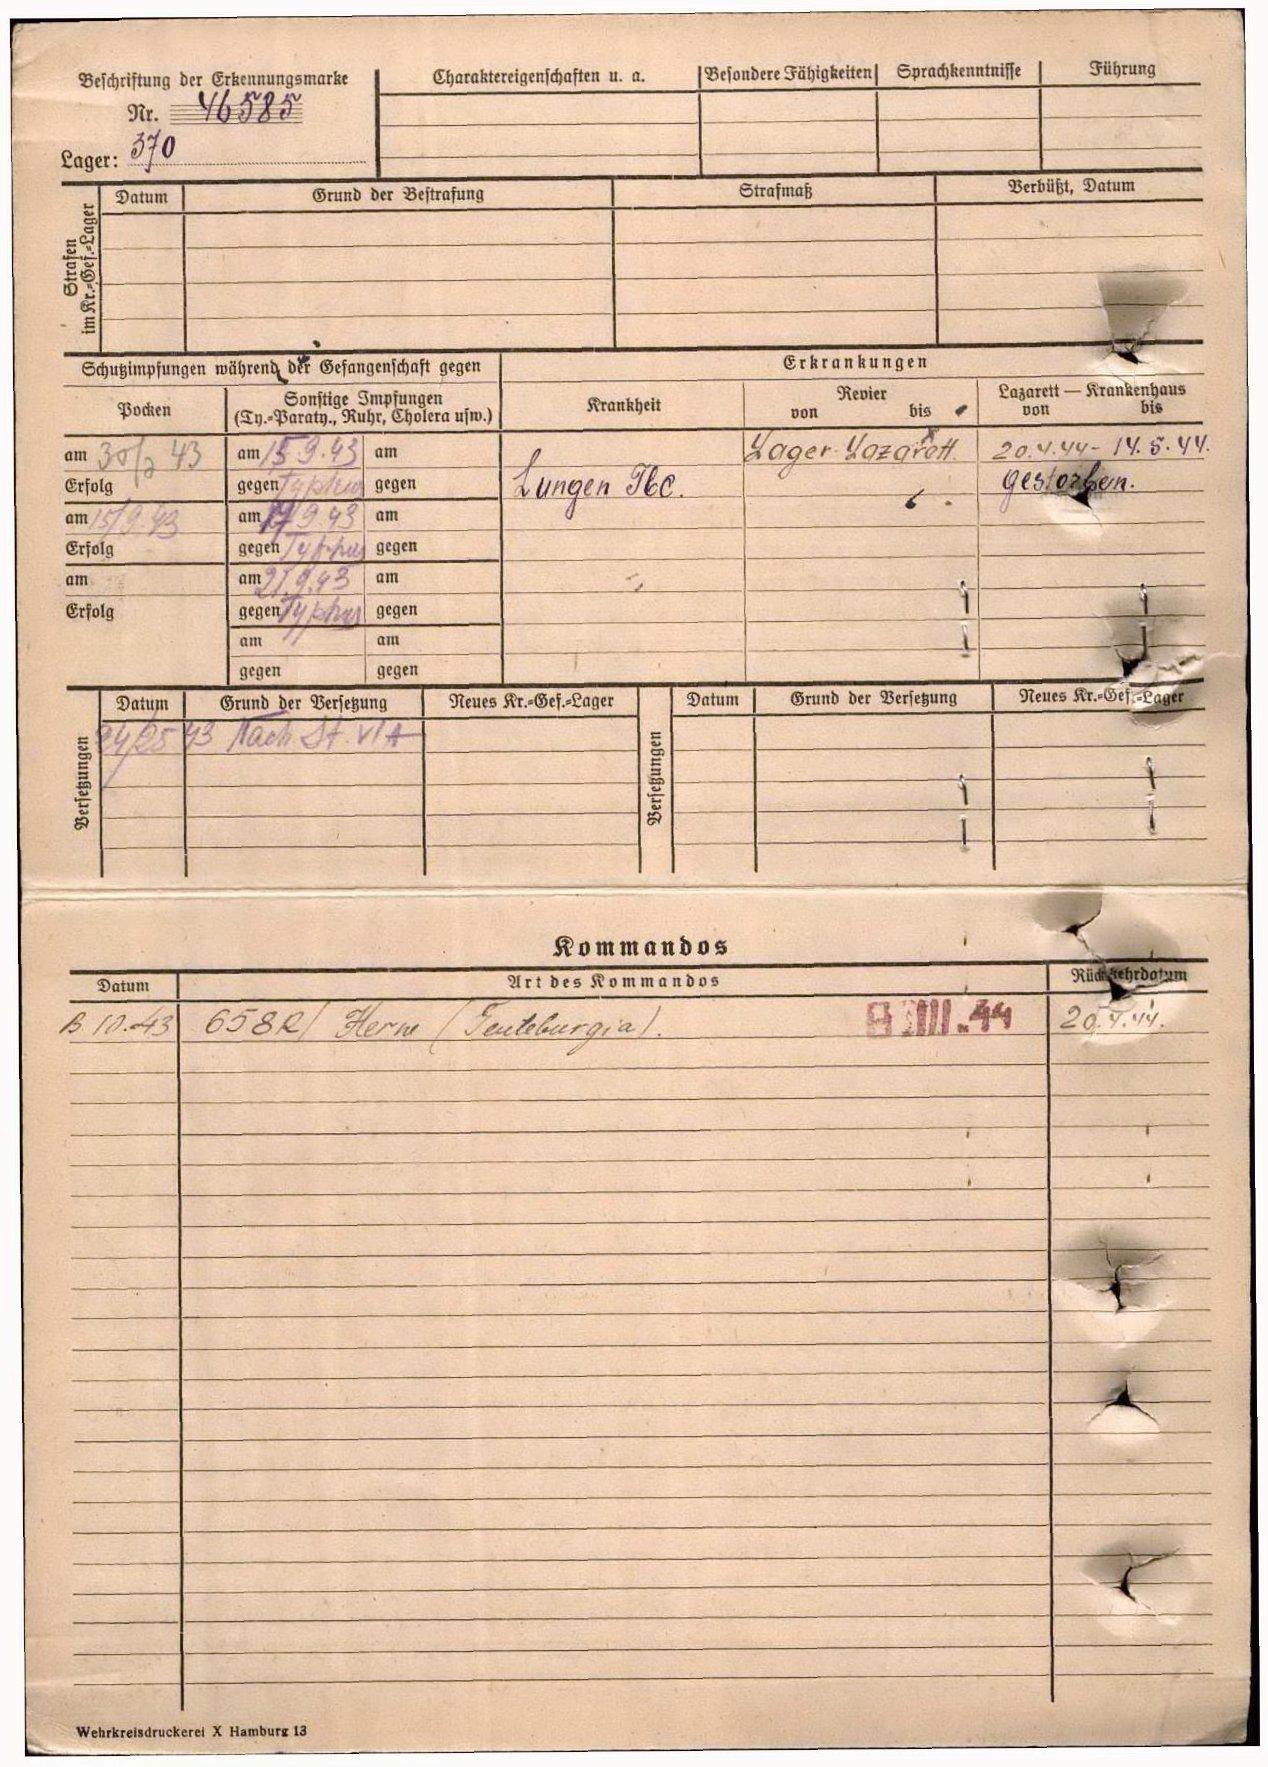 Beschriftung der Erkennungsmarke
Nr. 46585
Lager: 370
Charaktereigenschaften u. a.
Besondere Fähigkeiten
Sprachkenntnisse
Führung
Strafen
im Kr.=Gef.=Lager
Datum
Grund der Bestrafung
Strafmaß
Verbüßt, Datum
Schutzimpfungen während der Gefangenschaft gegen
Erkrankungen
Pocken
Sonstige Impfungen
(Ty.=Paraty., Ruhr, Cholera usw.)
Krankheit
Revier
von bis
Lazarett — Krankenhaus
von bis
am 43 am 15 9.43 am
Lager-Lazarett. 20.4.44 - 14.5.44.
Erfolg gegen Typhus gegen
Lungen Tbc. gestorben.
am 15/9.43 am 17 9 43 am
Erfolg gegen Typhus gegen
am am 21.9.43 am
Erfolg gegen Typhus gegen
am am
gegen gegen
Versetzungen
Datum
Grund der Versetzung
Neues Kr.=Gef.=Lager
Versetzungen
Datum
Grund der Versetzung
Neues Kr.=Gef.=Lager
43 Nach St. VI A
Kommandos
Datum
Art des Kommandos
Rückkehrdatum
10.43 658 R/ Herne (Teuteburgia). III.44 20.4.44.
Wehrkreisdruckerei X Hamburg 13